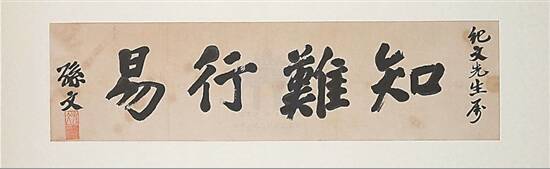 紀文先生属
知難行易
孫文